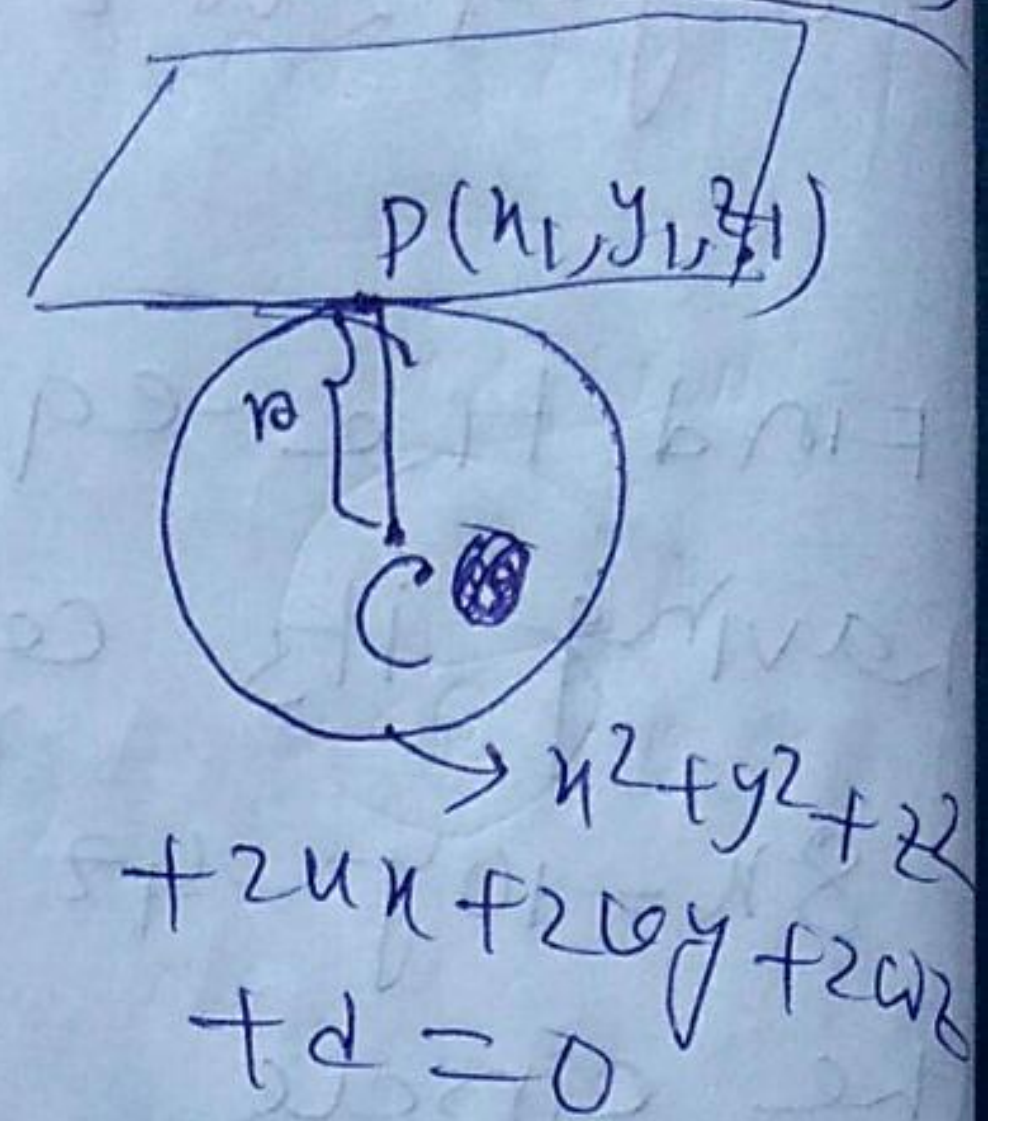 P(x₁, y₁, z₁)
r
C
x² + y² + z²
+ 2ux + 2vy + 2wz
+ d = 0